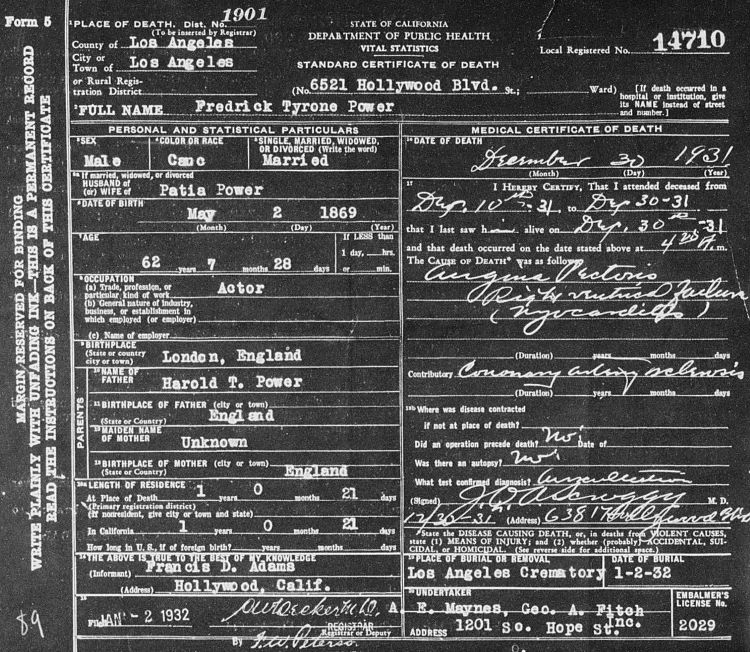 Form 5
MARGIN RESERVED FOR BINDING
WRITE PLAINLY WITH UNFADING INK—THIS IS A PERMANENT RECORD
READ THE INSTRUCTIONS ON BACK OF THIS CERTIFICATE
89
1 PLACE OF DEATH. Dist. No. 1901
(To be inserted by Registrar)
County of Los Angeles
City or
Town of Los Angeles
or Rural Regis-
tration District
STATE OF CALIFORNIA
DEPARTMENT OF PUBLIC HEALTH
VITAL STATISTICS
STANDARD CERTIFICATE OF DEATH
Local Registered No. 14710
(No. 6521 Hollywood Blvd. St.; Ward)
[If death occurred in a
hospital or institution, give
its NAME instead of street
and number.]
2 FULL NAME Fredrick Tyrone Power
PERSONAL AND STATISTICAL PARTICULARS
3 SEX
Male
4 COLOR OR RACE
Cauc
5 SINGLE, MARRIED, WIDOWED,
OR DIVORCED (Write the word)
Married
5a If married, widowed, or divorced
HUSBAND of
(or) WIFE of Patia Power
6 DATE OF BIRTH
May 2 1869
(Month) (Day) (Year)
7 AGE
62 years 7 months 28 days
If LESS than
1 day, hrs.
or min.
8 OCCUPATION
(a) Trade, profession, or
particular kind of work Actor
(b) General nature of industry,
business, or establishment in
which employed (or employer)
(c) Name of employer
9 BIRTHPLACE
(State or country
city or town) London, England
PARENTS
10 NAME OF
FATHER Harold T. Power
11 BIRTHPLACE OF FATHER (city or town)
(State or Country) England
12 MAIDEN NAME
OF MOTHER Unknown
13 BIRTHPLACE OF MOTHER (city or town)
(State or Country) England
LENGTH OF RESIDENCE
At Place of Death 1 years 0 months 21 days
(Primary registration district)
(If nonresident, give city or town and state)
In California 1 years 0 months 21 days
How long in U. S., if of foreign birth? years months days
14 THE ABOVE IS TRUE TO THE BEST OF MY KNOWLEDGE
(Informant) Francis D. Adams
(Address) Hollywood, Calif.
15
Filed JAN - 2 1932
REGISTRAR
Registrar or Deputy
By
MEDICAL CERTIFICATE OF DEATH
16 DATE OF DEATH
December 30 1931
(Month) (Day) (Year)
17 I HEREBY CERTIFY, That I attended deceased from
Dec. 10th-31, to Dec 30-31
that I last saw him alive on Dec. 30th-31
and that death occurred on the date stated above at 4 A.m.
The CAUSE OF DEATH* was as follows:
Angina Pectoris
Right ventricle failure
(myocarditis)
(Duration) years months days
Contributory Coronary artery sclerosis
(Duration) years months days
18b Where was disease contracted
if not at place of death?
Did an operation precede death? No. Date of
Was there an autopsy? No.
What test confirmed diagnosis? Auscultation
(Signed) M. D.
12/30-31 (Address)
*State the DISEASE CAUSING DEATH, or, in deaths from VIOLENT CAUSES,
state (1) MEANS OF INJURY; and (2) whether (probably) ACCIDENTAL, SUI-
CIDAL, or HOMICIDAL. (See reverse side for additional space.)
19 PLACE OF BURIAL OR REMOVAL
Los Angeles Crematory
DATE OF BURIAL
1-2-32
20 UNDERTAKER
E. Maynes, Geo. A. Fitch
Inc.
ADDRESS 1201 So. Hope St.
EMBALMER'S
LICENSE No.
2029